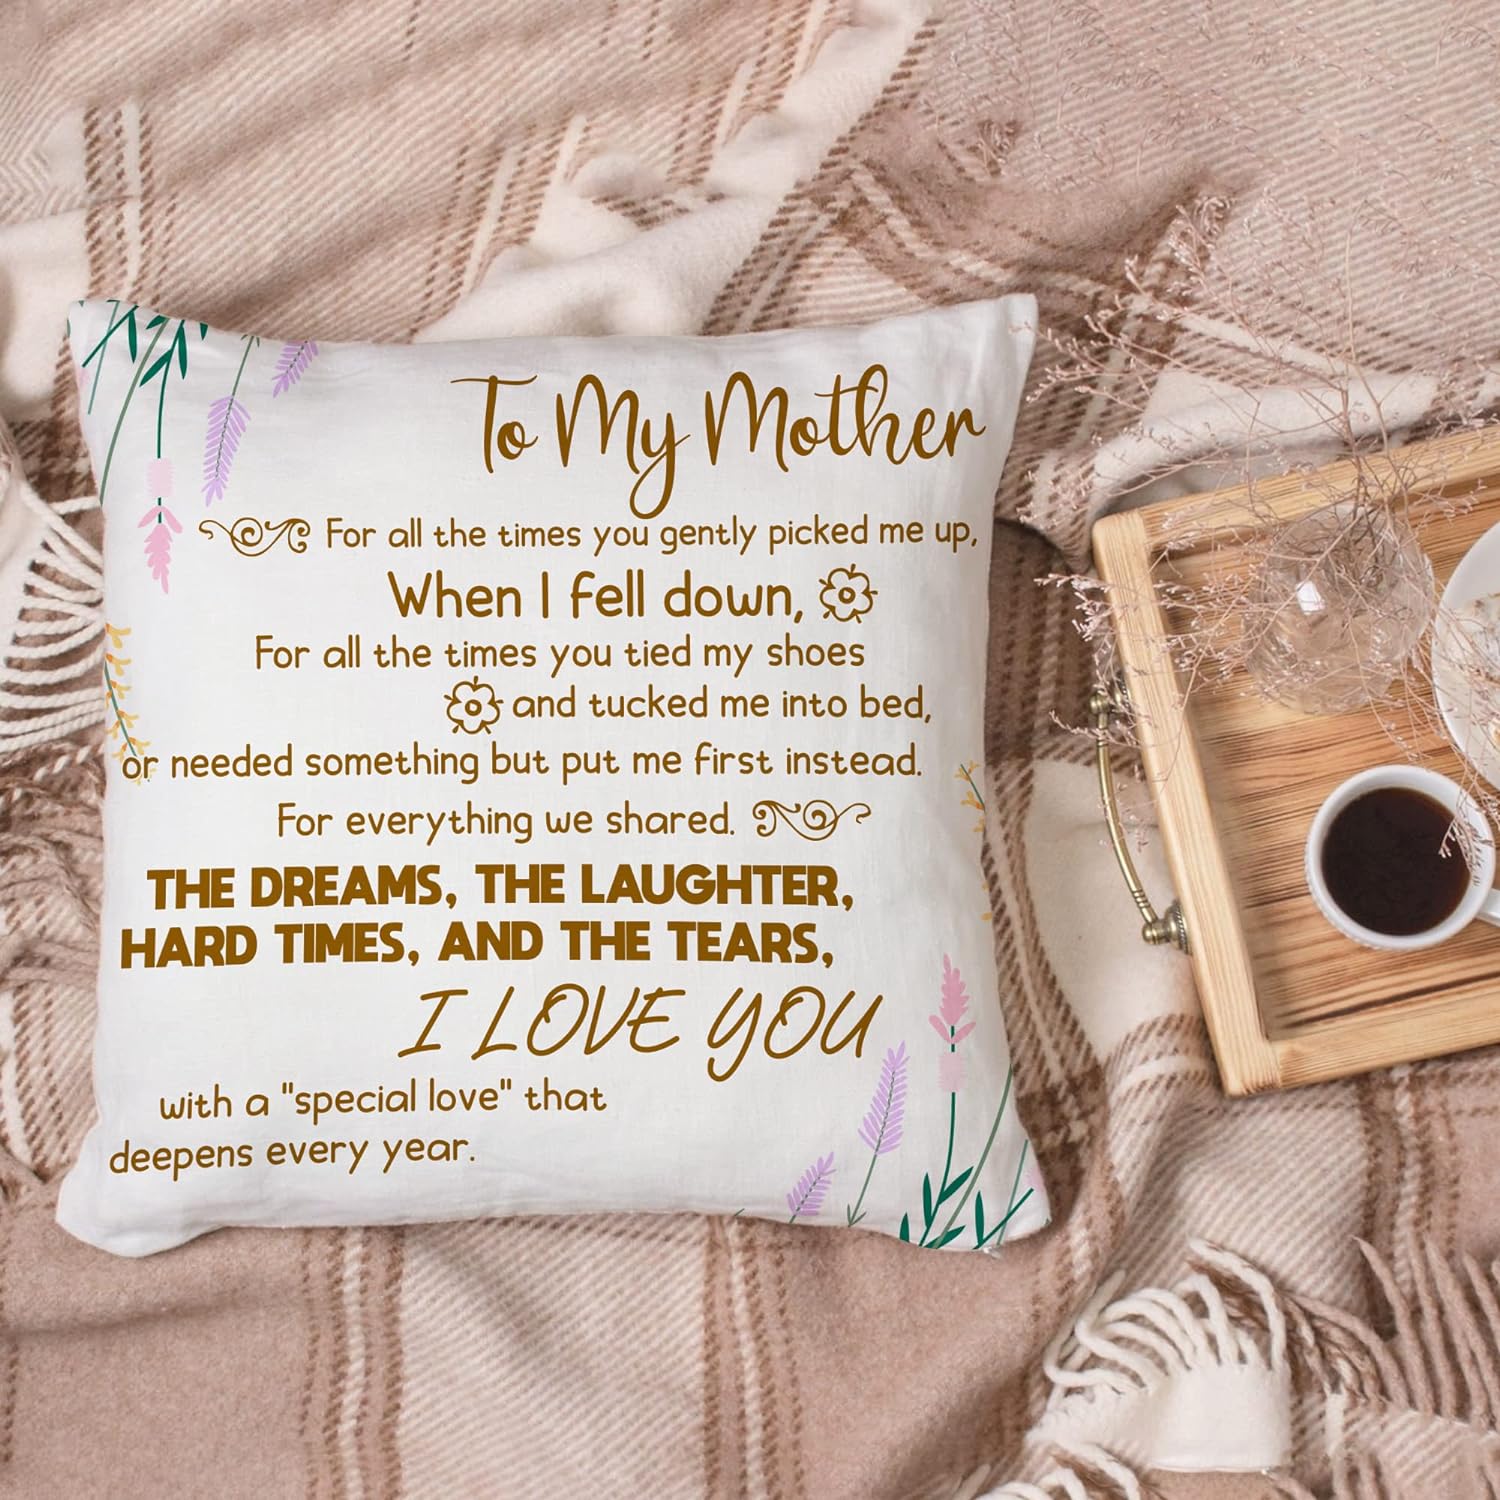 To My Mother
For all the times you gently picked me up,
When I fell down,
For all the times you tied my shoes
and tucked me into bed,
or needed something but put me first instead.
For everything we shared.
THE DREAMS, THE LAUGHTER,
HARD TIMES, AND THE TEARS,
I LOVE YOU
with a "special love" that
deepens every year.